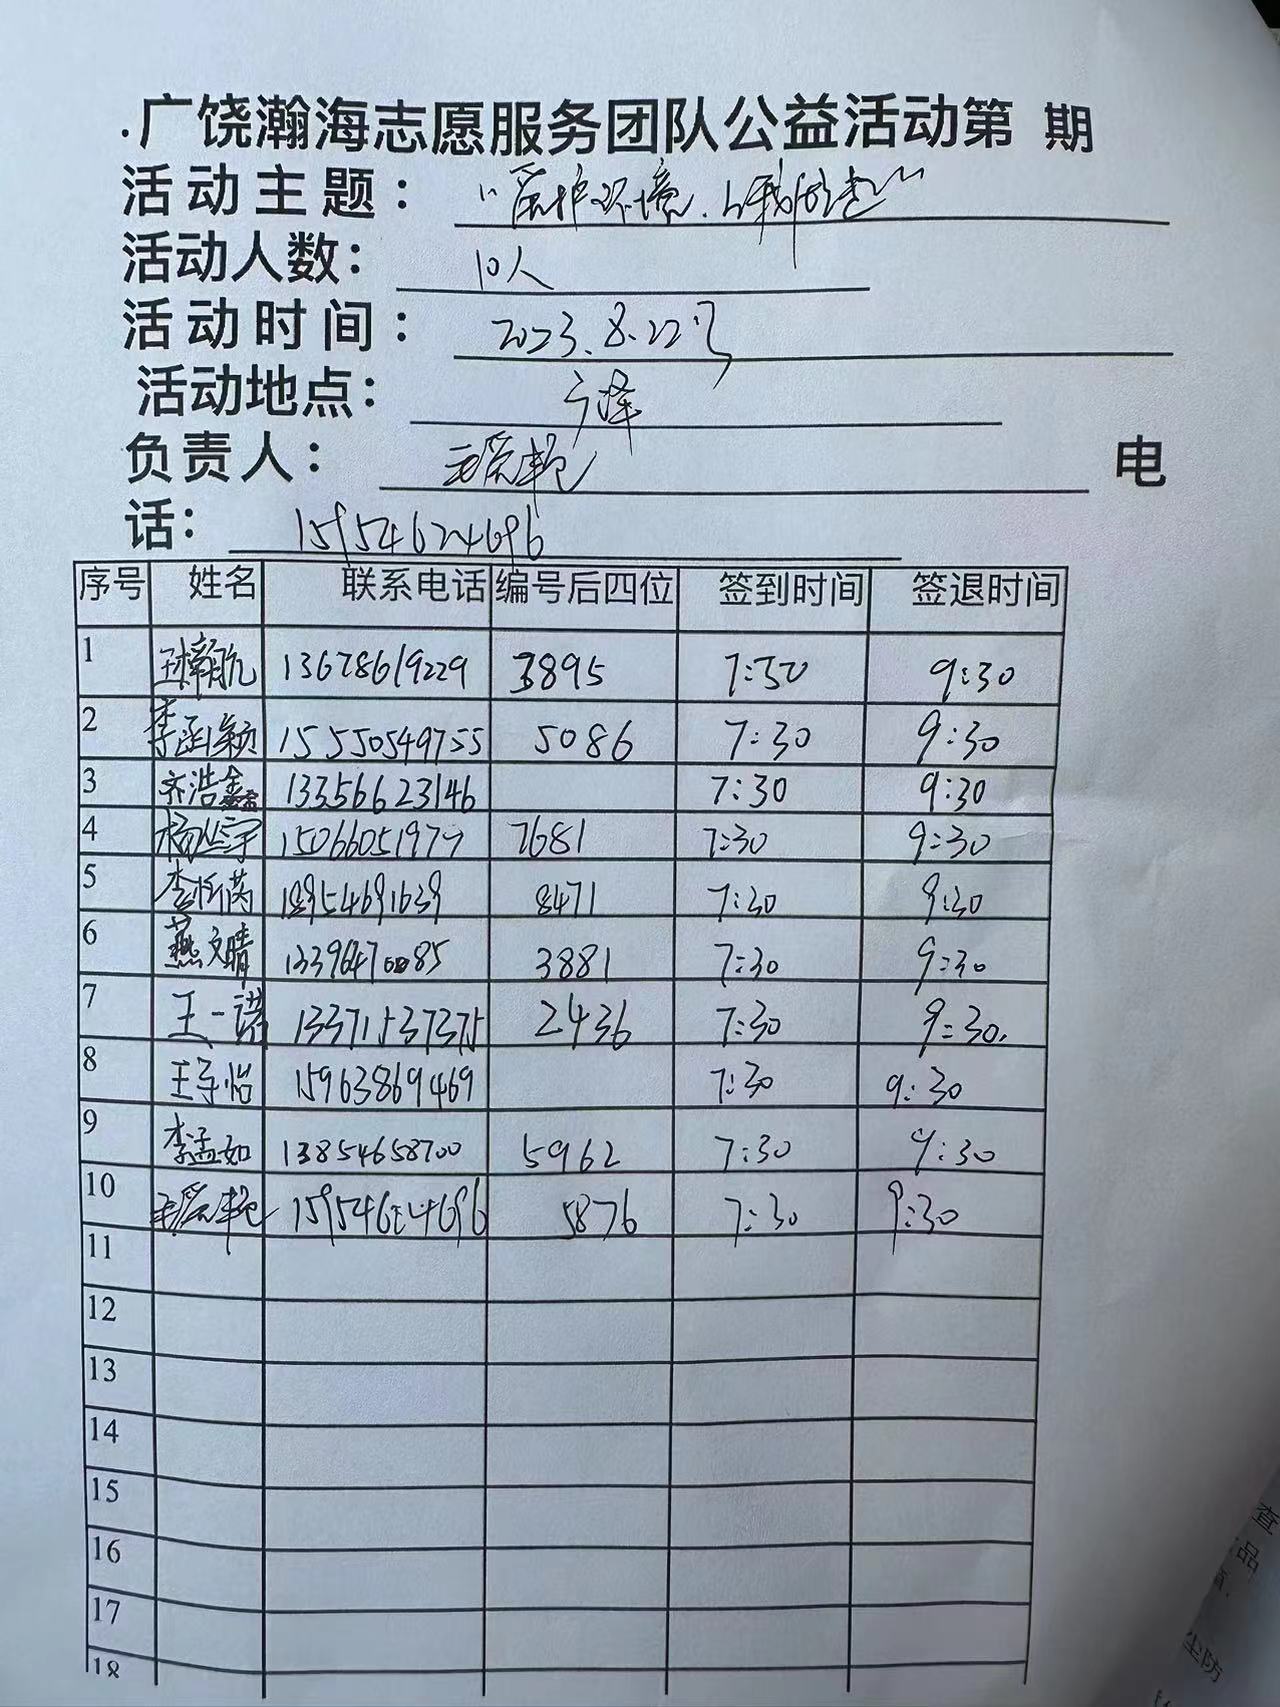 广饶瀚海志愿服务团队公益活动第 期
活动主题： “爱护环境，从我做起”
活动人数： 10人
活动时间： 2023.8.22日
活动地点：
负责人： 电
话： 15954624696
序号 姓名 联系电话 编号后四位 签到时间 签退时间
1 13678619229 3895 7:30 9:30
2 李函颖 15550549755 5086 7:30 9:30
3 齐浩鑫 13356623146 7:30 9:30
4 15066051979 7681 7:30 9:30
5 18954691639 8471 7:30 9:30
6 燕文晴 3881 7:30 9:30
7 王一诺 13371537375 2436 7:30 9:30.
8 王子怡 15963869469 7:30 9:30
9 李孟如 13854658700 5962 7:30 9:30
10 15954624696 5876 7:30 9:30
11
12
13
14
15
16
17
18
查
品
尘防